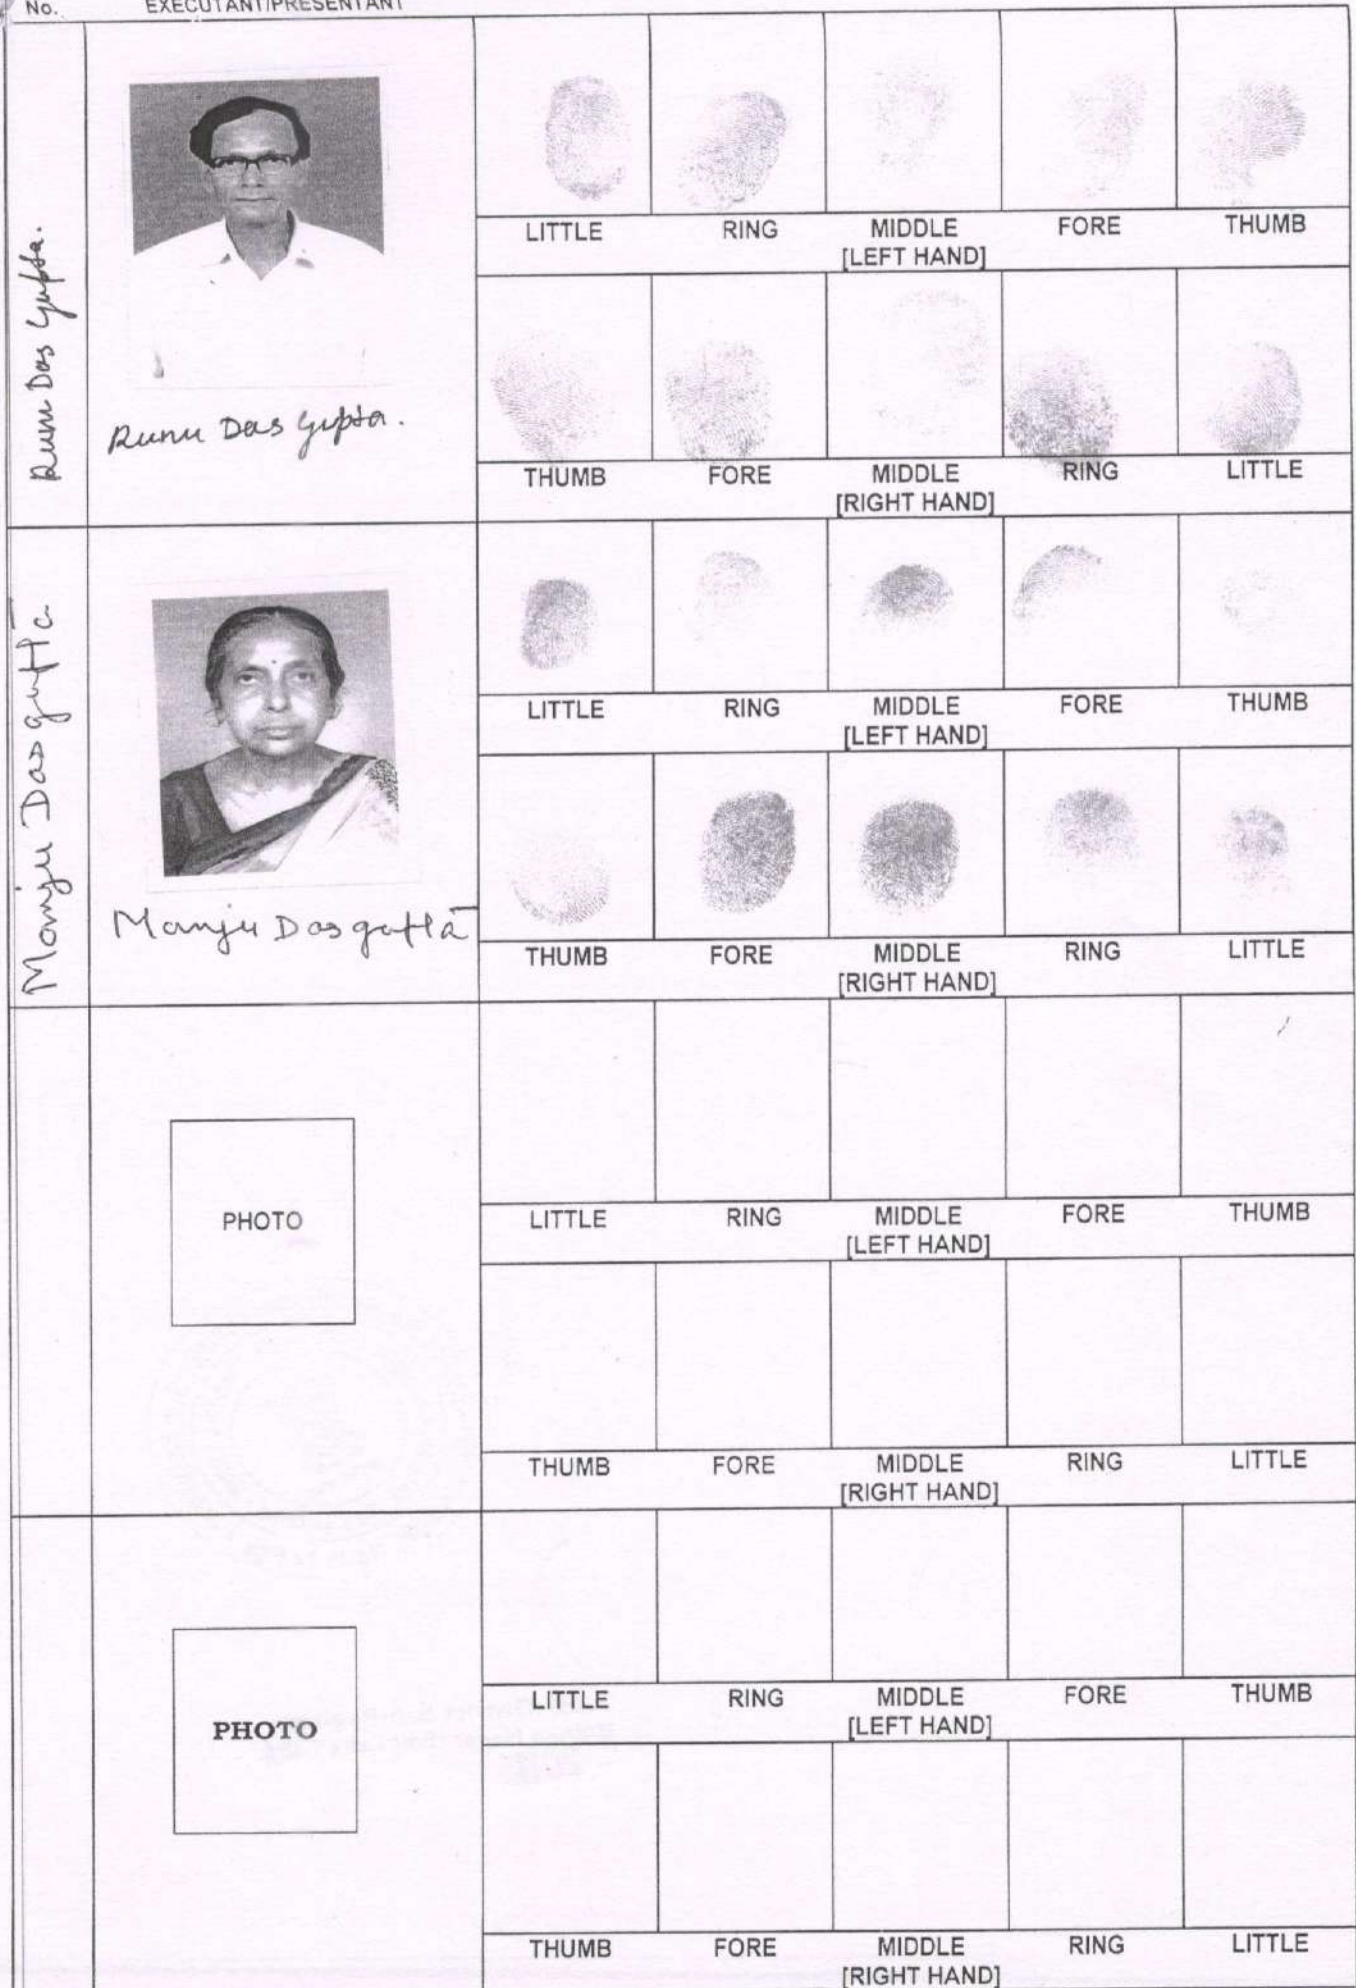 No. EXECUTANT/PRESENTANT
Runu Das Gupta.
Runu Das Gupta.
LITTLE RING MIDDLE FORE THUMB
[LEFT HAND]
THUMB FORE MIDDLE RING LITTLE
[RIGHT HAND]
Manju Dasgupta
Manju Dasgupta
LITTLE RING MIDDLE FORE THUMB
[LEFT HAND]
THUMB FORE MIDDLE RING LITTLE
[RIGHT HAND]
PHOTO
LITTLE RING MIDDLE FORE THUMB
[LEFT HAND]
THUMB FORE MIDDLE RING LITTLE
[RIGHT HAND]
PHOTO
LITTLE RING MIDDLE FORE THUMB
[LEFT HAND]
THUMB FORE MIDDLE RING LITTLE
[RIGHT HAND]